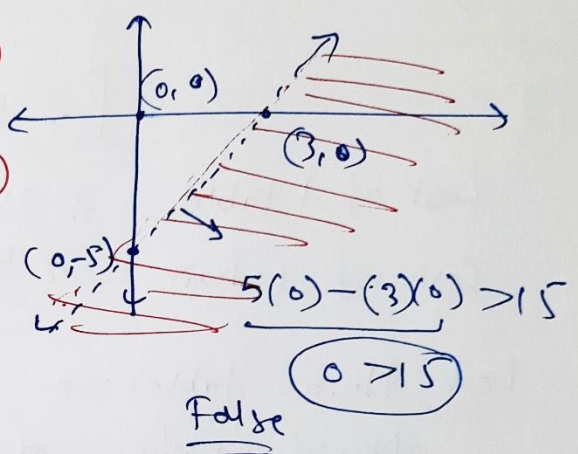 (0, 0)
(3, 0)
(0, -5)
5(0) - (3)(0) > 15
0 > 15
False